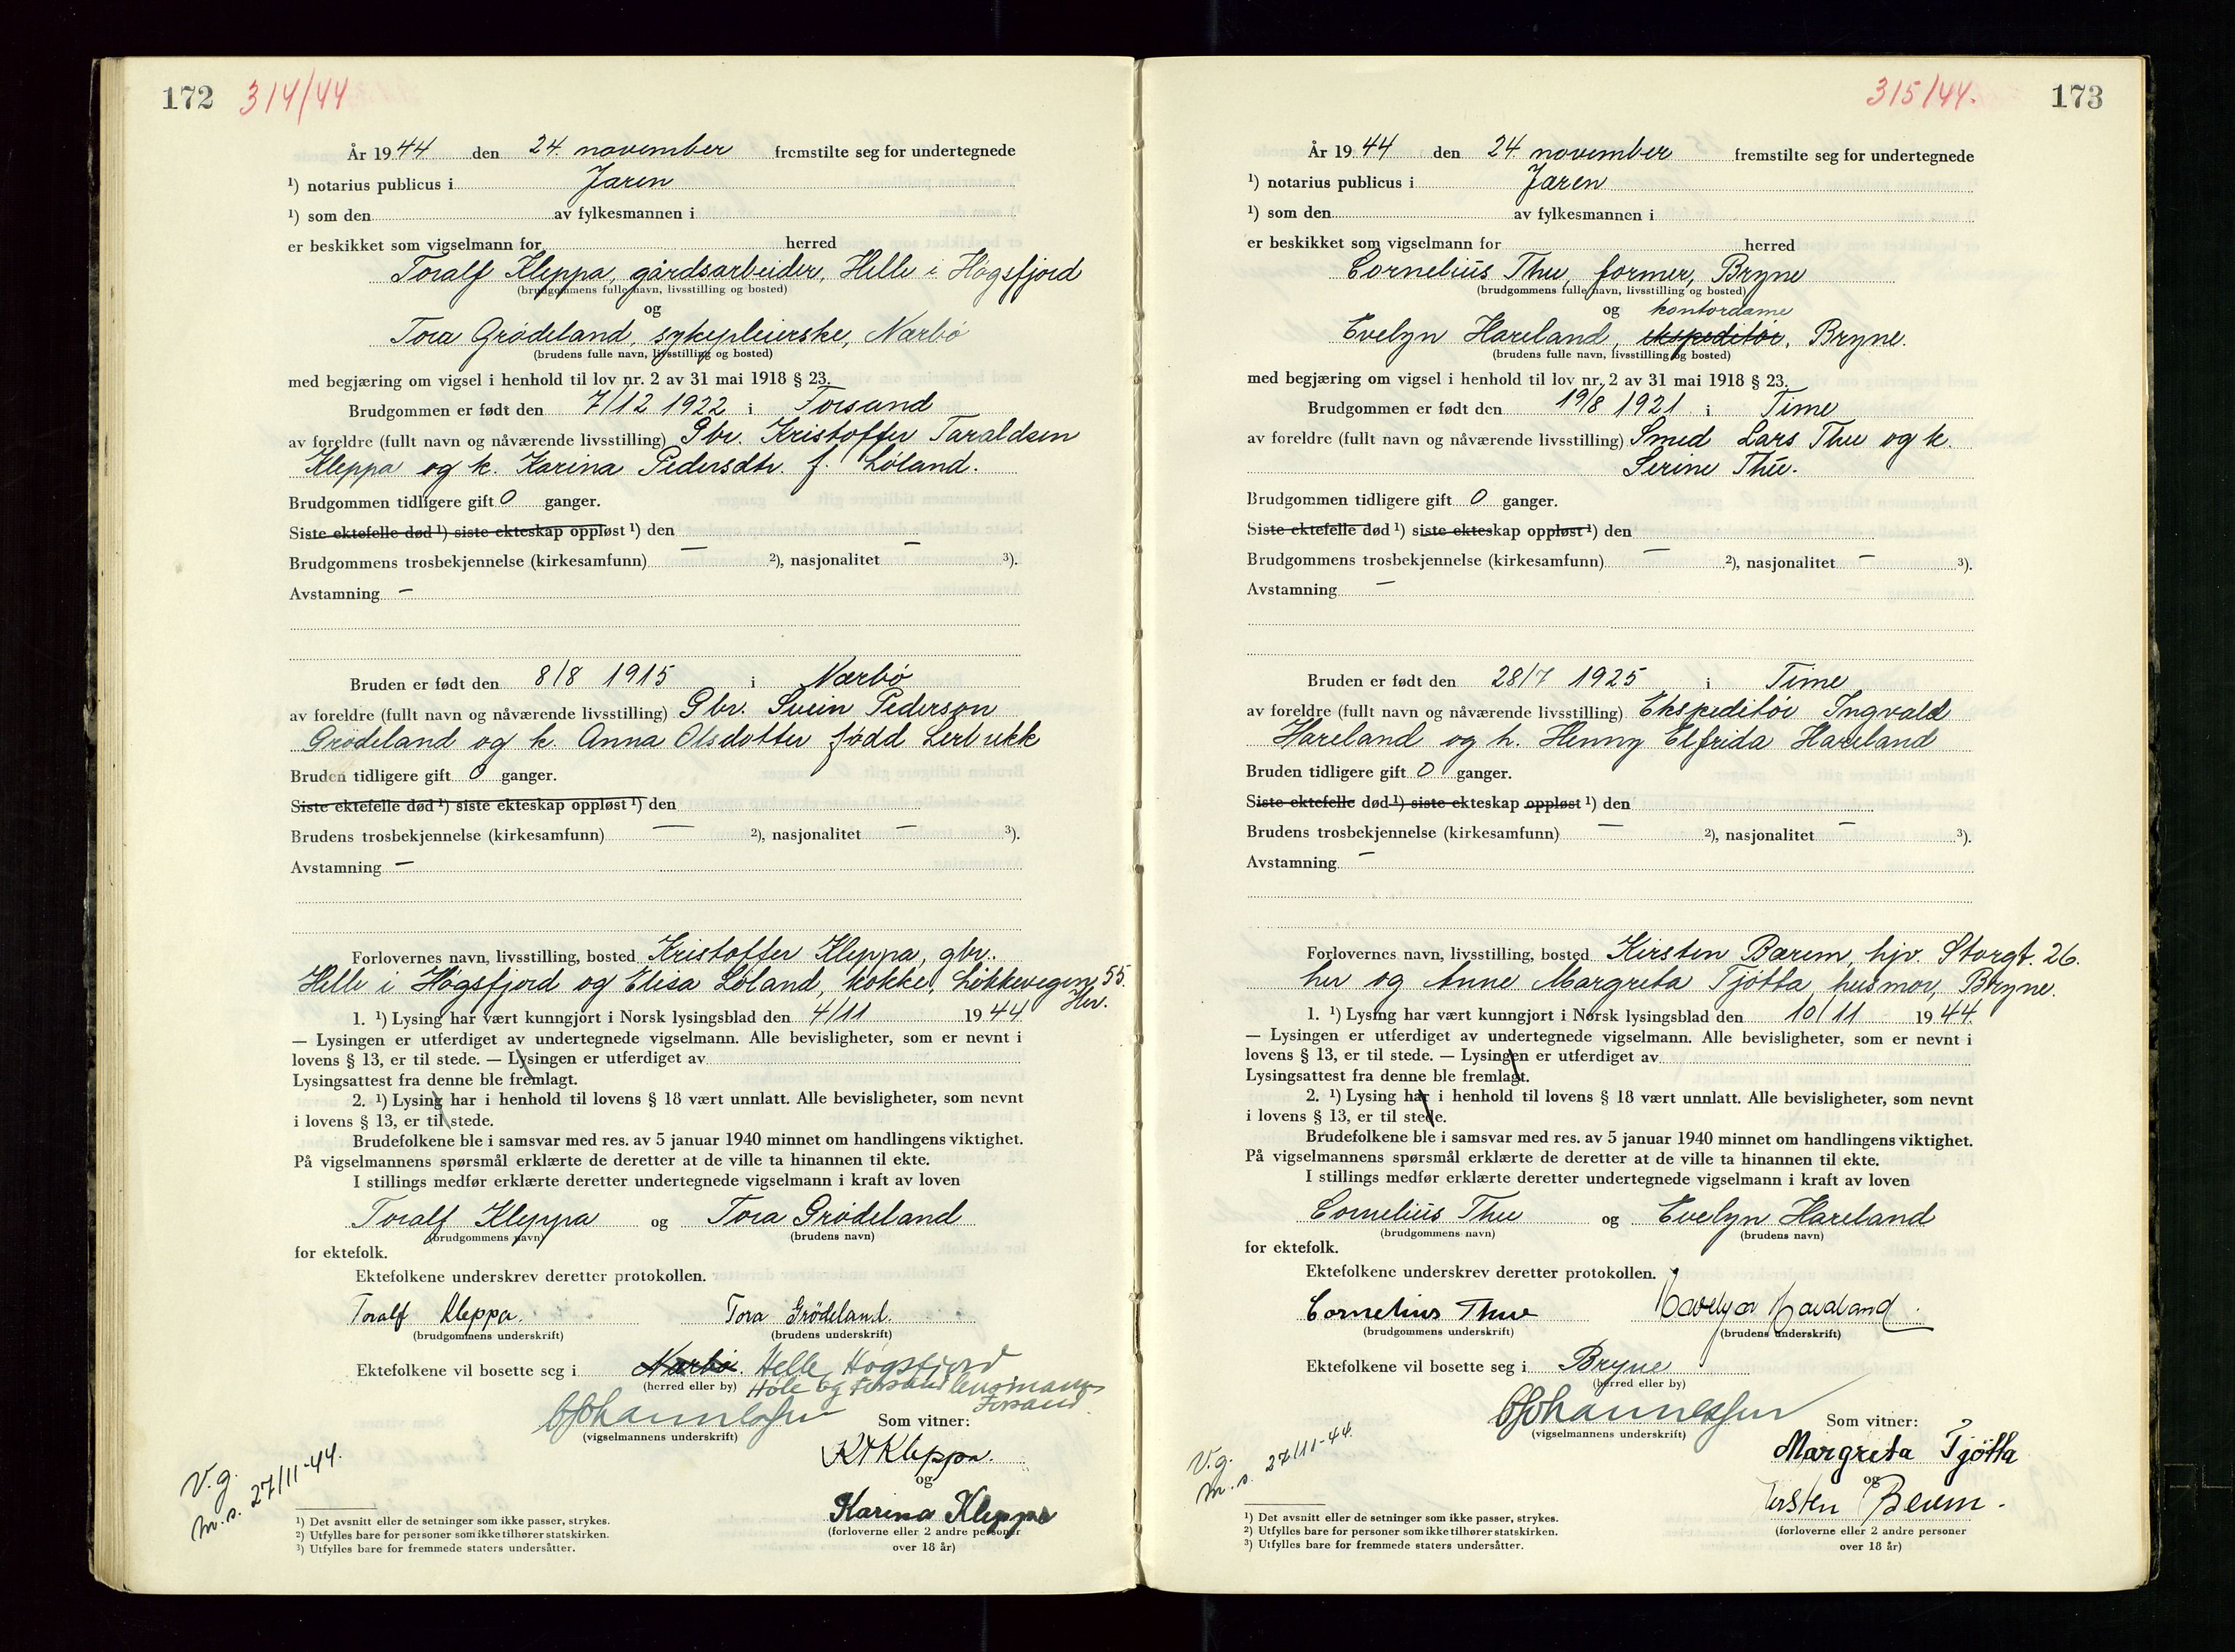 172 314/44
År 1944 den 24. november fremstilte seg for undertegnede
¹) notarius publicus i Jæren
¹) som den av fylkesmannen i
er beskikket som vigselmann for herred
Toralf Kleppa, gårdsarbeider, Helle i Høgsfjord
(brudgommens fulle navn, livsstilling og bosted)
og
Tora Grødeland, sykepleierske, Nærbø
(brudens fulle navn, livsstilling og bosted)
med begjæring om vigsel i henhold til lov nr. 2 av 31 mai 1918 § 23.
Brudgommen er født den 7/12 1922 i Forsand
av foreldre (fullt navn og nåværende livsstilling) Gbr. Kristoffer Taraldsen
Kleppa og k. Karina Pedersdtr. f. Løland.
Brudgommen tidligere gift 0 ganger.
Siste ektefelle død ¹) siste ekteskap oppløst ¹) den
Brudgommens trosbekjennelse (kirkesamfunn) — ²), nasjonalitet — ³).
Avstamning —
Bruden er født den 8/8 1915 i Nærbø
av foreldre (fullt navn og nåværende livsstilling) Gbr. Svein Pederson
Grødeland og k. Anna Olsdotter fødd Lerbrekk
Bruden tidligere gift 0 ganger.
Siste ektefelle død ¹) siste ekteskap oppløst ¹) den
Brudens trosbekjennelse (kirkesamfunn) — ²), nasjonalitet — ³).
Avstamning —
Forlovernes navn, livsstilling, bosted Kristoffer Kleppa, gbr.
Helle i Høgsfjord og Elisa Løland, kokke, Løkkevegen 55
Her.
1. ¹) Lysing har vært kunngjort i Norsk lysingsblad den 4/11 1944
— Lysingen er utferdiget av undertegnede vigselmann. Alle bevisligheter, som er nevnt i
lovens § 13, er til stede. — Lysingen er utferdiget av
Lysingsattest fra denne ble fremlagt.
2. ¹) Lysing har i henhold til lovens § 18 vært unnlatt. Alle bevisligheter, som nevnt
i lovens § 13, er til stede.
Brudefolkene ble i samsvar med res. av 5 januar 1940 minnet om handlingens viktighet.
På vigselmannens spørsmål erklærte de deretter at de ville ta hinannen til ekte.
I stillings medfør erklærte deretter undertegnede vigselmann i kraft av loven
Toralf Kleppa og Tora Grødeland
(brudgommens navn) (brudens navn)
for ektefolk.
Ektefolkene underskrev deretter protokollen.
Toralf Kleppa. Tora Grödeland.
(brudgommens underskrift) (brudens underskrift)
Ektefolkene vil bosette seg i Nærbø. Helle, Høgsfjord
(herred eller by) Høle og Forsand lensmann
Forsand
Som vitner:
(vigselmannens underskrift)
K T Kleppa.
og
Karina Kleppa
(forloverne eller 2 andre personer
over 18 år)
V.g.
m.s. 27/11-44.
¹) Det avsnitt eller de setninger som ikke passer, strykes.
²) Utfylles bare for personer som ikke tilhører statskirken.
³) Utfylles bare for fremmede staters undersåtter.
315/44. 173
År 1944 den 24. november fremstilte seg for undertegnede
¹) notarius publicus i Jæren
¹) som den av fylkesmannen i
er beskikket som vigselmann for herred
Cornelius Thu, former, Bryne
(brudgommens fulle navn, livsstilling og bosted)
og kontordame
Evelyn Hareland, ekspeditør, Bryne.
(brudens fulle navn, livsstilling og bosted)
med begjæring om vigsel i henhold til lov nr. 2 av 31 mai 1918 § 23.
Brudgommen er født den 19/8 1921 i Time
av foreldre (fullt navn og nåværende livsstilling) Smed Lars Thu og k.
Serine Thu.
Brudgommen tidligere gift 0 ganger.
Siste ektefelle død ¹) siste ekteskap oppløst ¹) den
Brudgommens trosbekjennelse (kirkesamfunn) — ²), nasjonalitet — ³).
Avstamning —
Bruden er født den 28/7 1925 i Time
av foreldre (fullt navn og nåværende livsstilling) Ekspeditør Ingvald
Hareland og h. Henny Elfrida Hareland
Bruden tidligere gift 0 ganger.
Siste ektefelle død ¹) siste ekteskap oppløst ¹) den
Brudens trosbekjennelse (kirkesamfunn) — ²), nasjonalitet — ³).
Avstamning —
Forlovernes navn, livsstilling, bosted Kirsten Bærem, hjv. Storgt. 26.
her og Anne Margreta Tjøtta husmor, Bryne.
1. ¹) Lysing har vært kunngjort i Norsk lysingsblad den 10/11 1944.
— Lysingen er utferdiget av undertegnede vigselmann. Alle bevisligheter, som er nevnt i
lovens § 13, er til stede. — Lysingen er utferdiget av
Lysingsattest fra denne ble fremlagt.
2. ¹) Lysing har i henhold til lovens § 18 vært unnlatt. Alle bevisligheter, som nevnt
i lovens § 13, er til stede.
Brudefolkene ble i samsvar med res. av 5 januar 1940 minnet om handlingens viktighet.
På vigselmannens spørsmål erklærte de deretter at de ville ta hinannen til ekte.
I stillings medfør erklærte deretter undertegnede vigselmann i kraft av loven
Cornelius Thu og Evelyn Hareland
(brudgommens navn) (brudens navn)
for ektefolk.
Ektefolkene underskrev deretter protokollen.
Cornelius Thu Evelyn Haveland.
(brudgommens underskrift) (brudens underskrift)
Ektefolkene vil bosette seg i Bryne
(herred eller by)
Som vitner:
(vigselmannens underskrift)
Margreta Tjötta
og
Kirsten Berem.
(forloverne eller 2 andre personer
over 18 år)
V.g.
m.s. 27/11-44.
¹) Det avsnitt eller de setninger som ikke passer, strykes.
²) Utfylles bare for personer som ikke tilhører statskirken.
³) Utfylles bare for fremmede staters undersåtter.